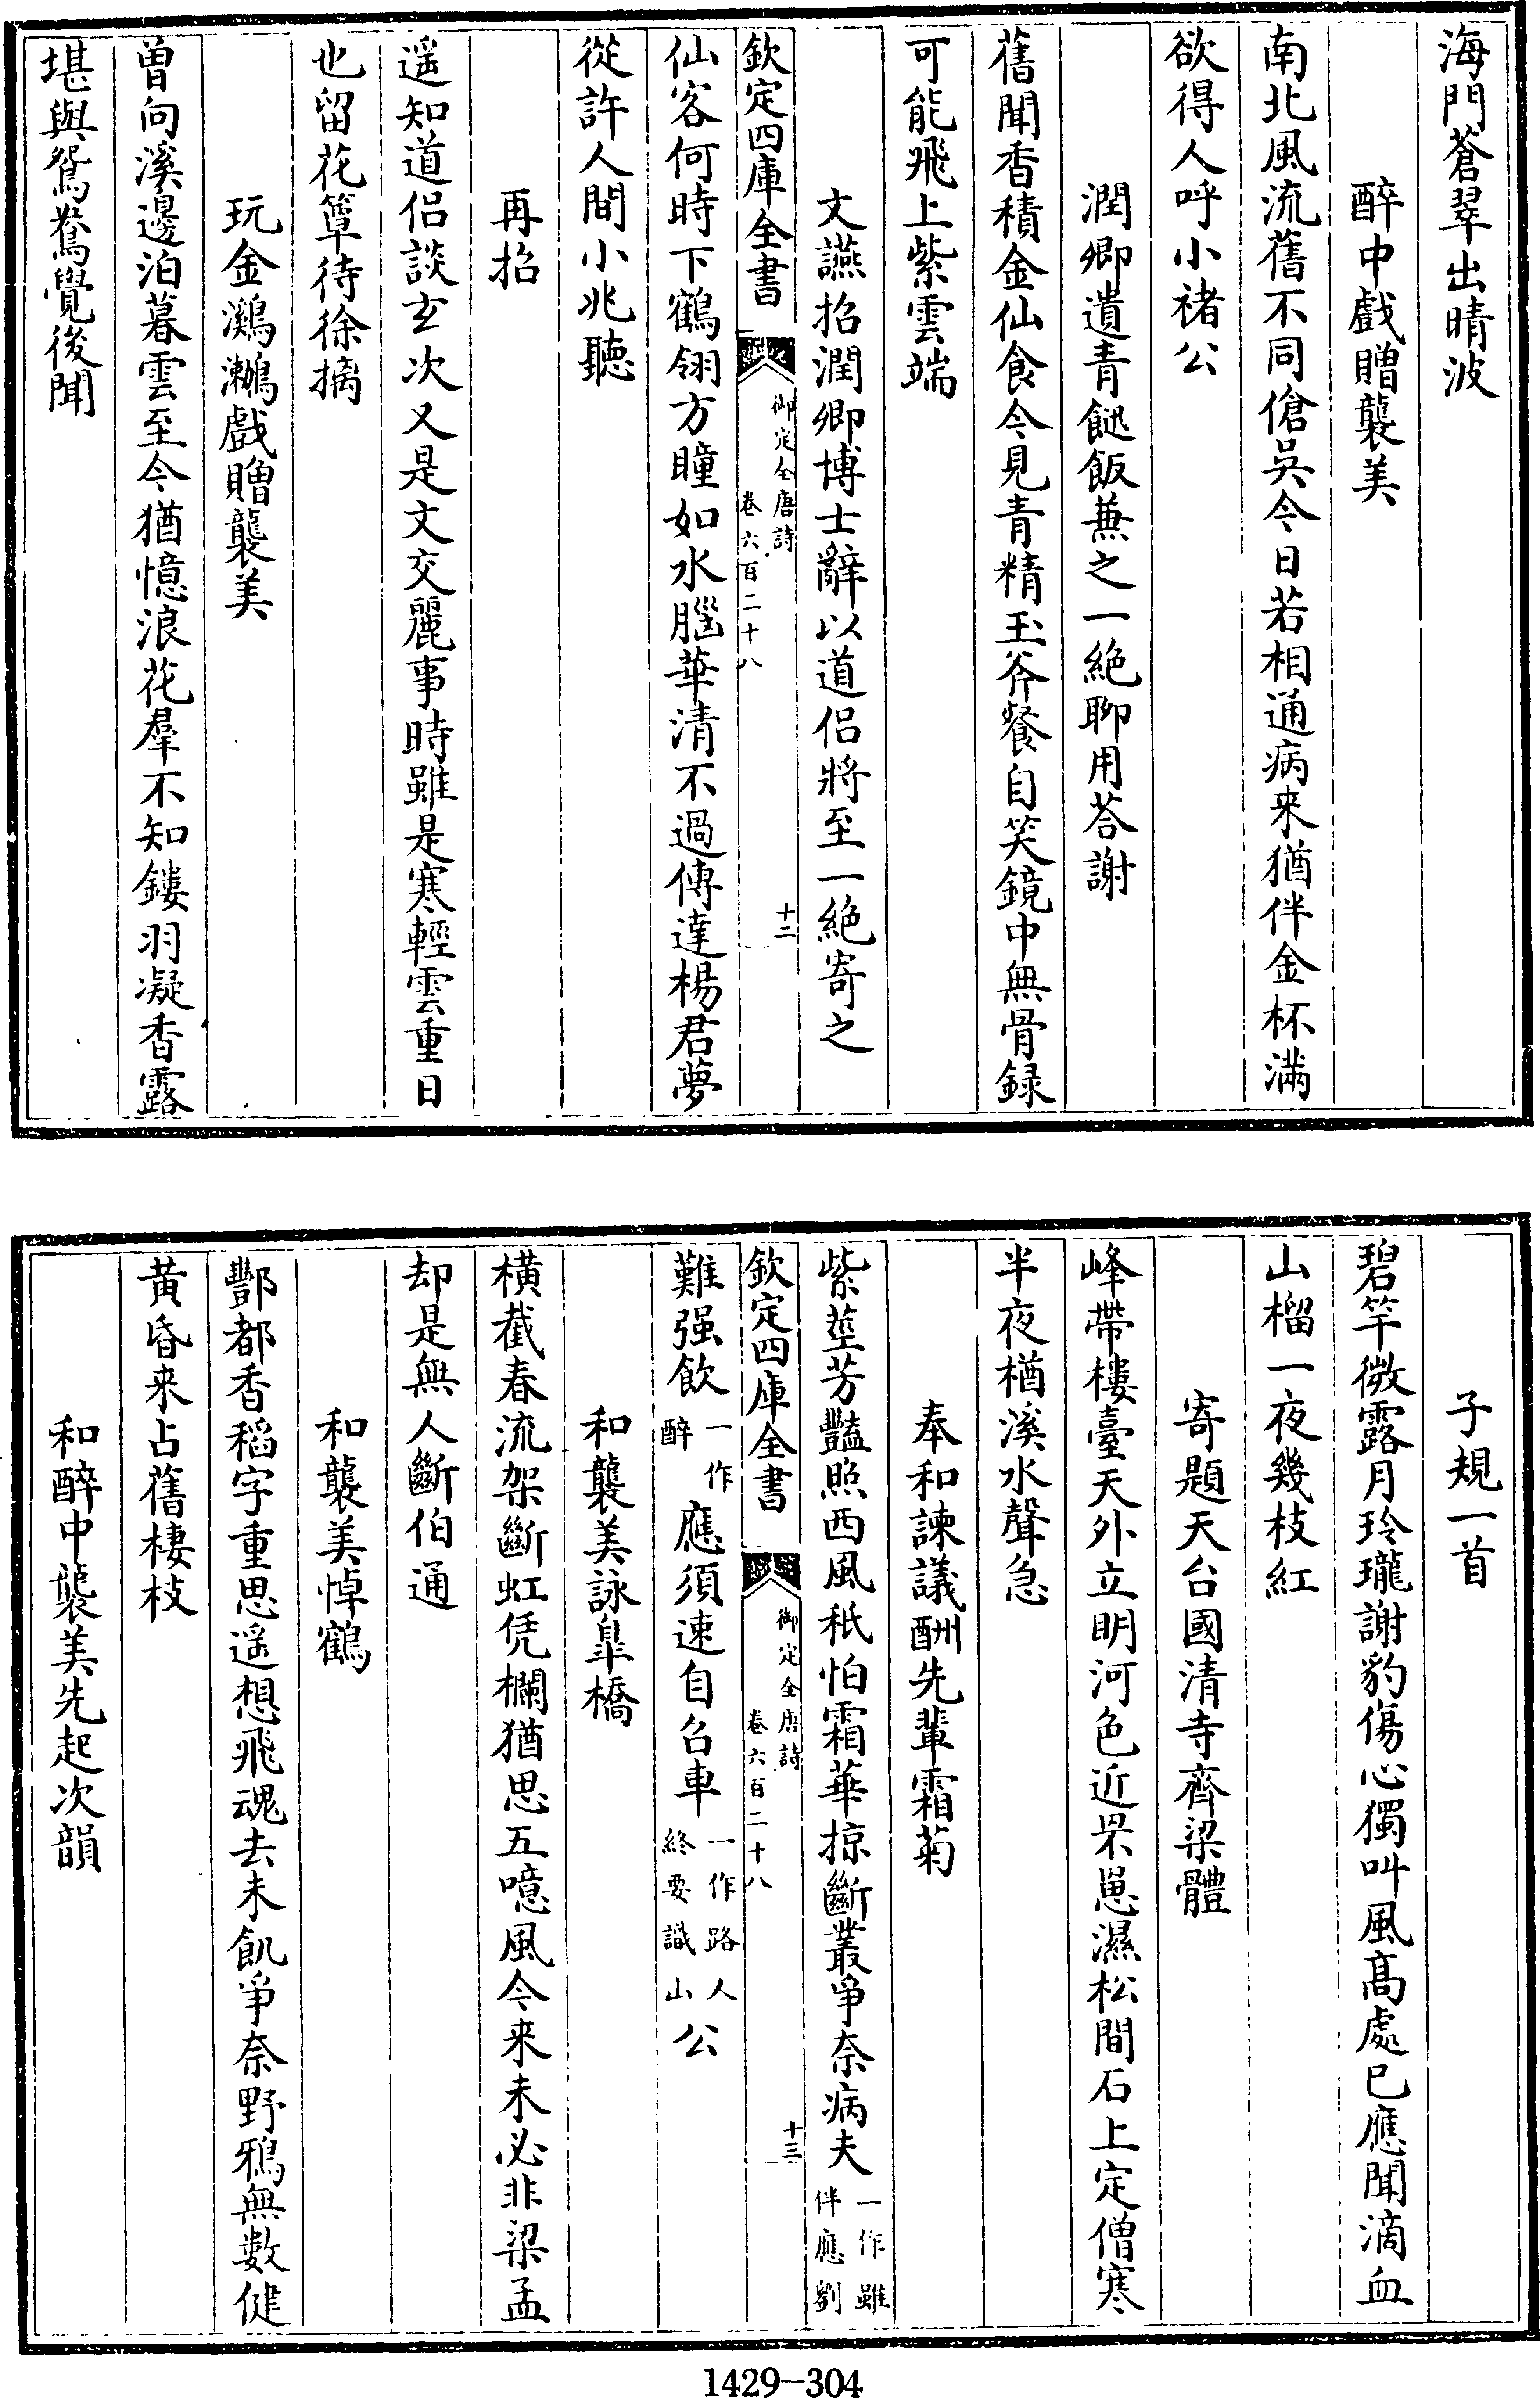 海門蒼翠出晴波
醉中戲贈襲美
南北風流舊不同傖吳今日若相通病来猶伴金杯滿
欲得人呼小褚公
潤卿遺青䭀飯兼之一絶聊用荅謝
舊聞香積金仙食今見青精玉斧餐自笑鏡中無骨録
可能飛上紫雲端
文讌招潤卿博士辭以道侣將至一絶寄之
欽定四庫全書
御定全唐詩
卷六百二十八
十二
仙客何時下鶴翎方瞳如水腦華清不過傳達楊君夢
從許人間小兆聽
再招
遥知道侣談玄次又是文交麗事時雖是寒輕雲重日
也留花簟待徐摛
玩金鸂鶒戲贈襲美
曾向溪邊泊暮雲至今猶憶浪花羣不知鏤羽凝香露
堪與鴛鴦覺後聞
子規一首
碧竿微露月玲瓏謝豹傷心獨叫風髙處已應聞滴血
山榴一夜幾枝紅
寄題天台國清寺齊梁體
峰帶樓臺天外立明河色近罘罳濕松間石上定僧寒
半夜楢溪水聲急
奉和諫議酬先輩霜菊
紫莖芳豔照西風秖怕霜華掠斷叢爭奈病夫一作雖伴應劉
欽定四庫全書
御定全唐詩
卷六百二十八
十三
難强飲一作醉應須速自召車一作路人終要識山公
和襲美詠臯橋
横截春流架斷虹凭欄猶思五噫風今来未必非梁孟
却是無人斷伯通
和襲美悼鶴
酆都香稻字重思遥想飛魂去未飢爭奈野鴉無數健
黄昏来占舊棲枝
和醉中襲美先起次韻
1429-304